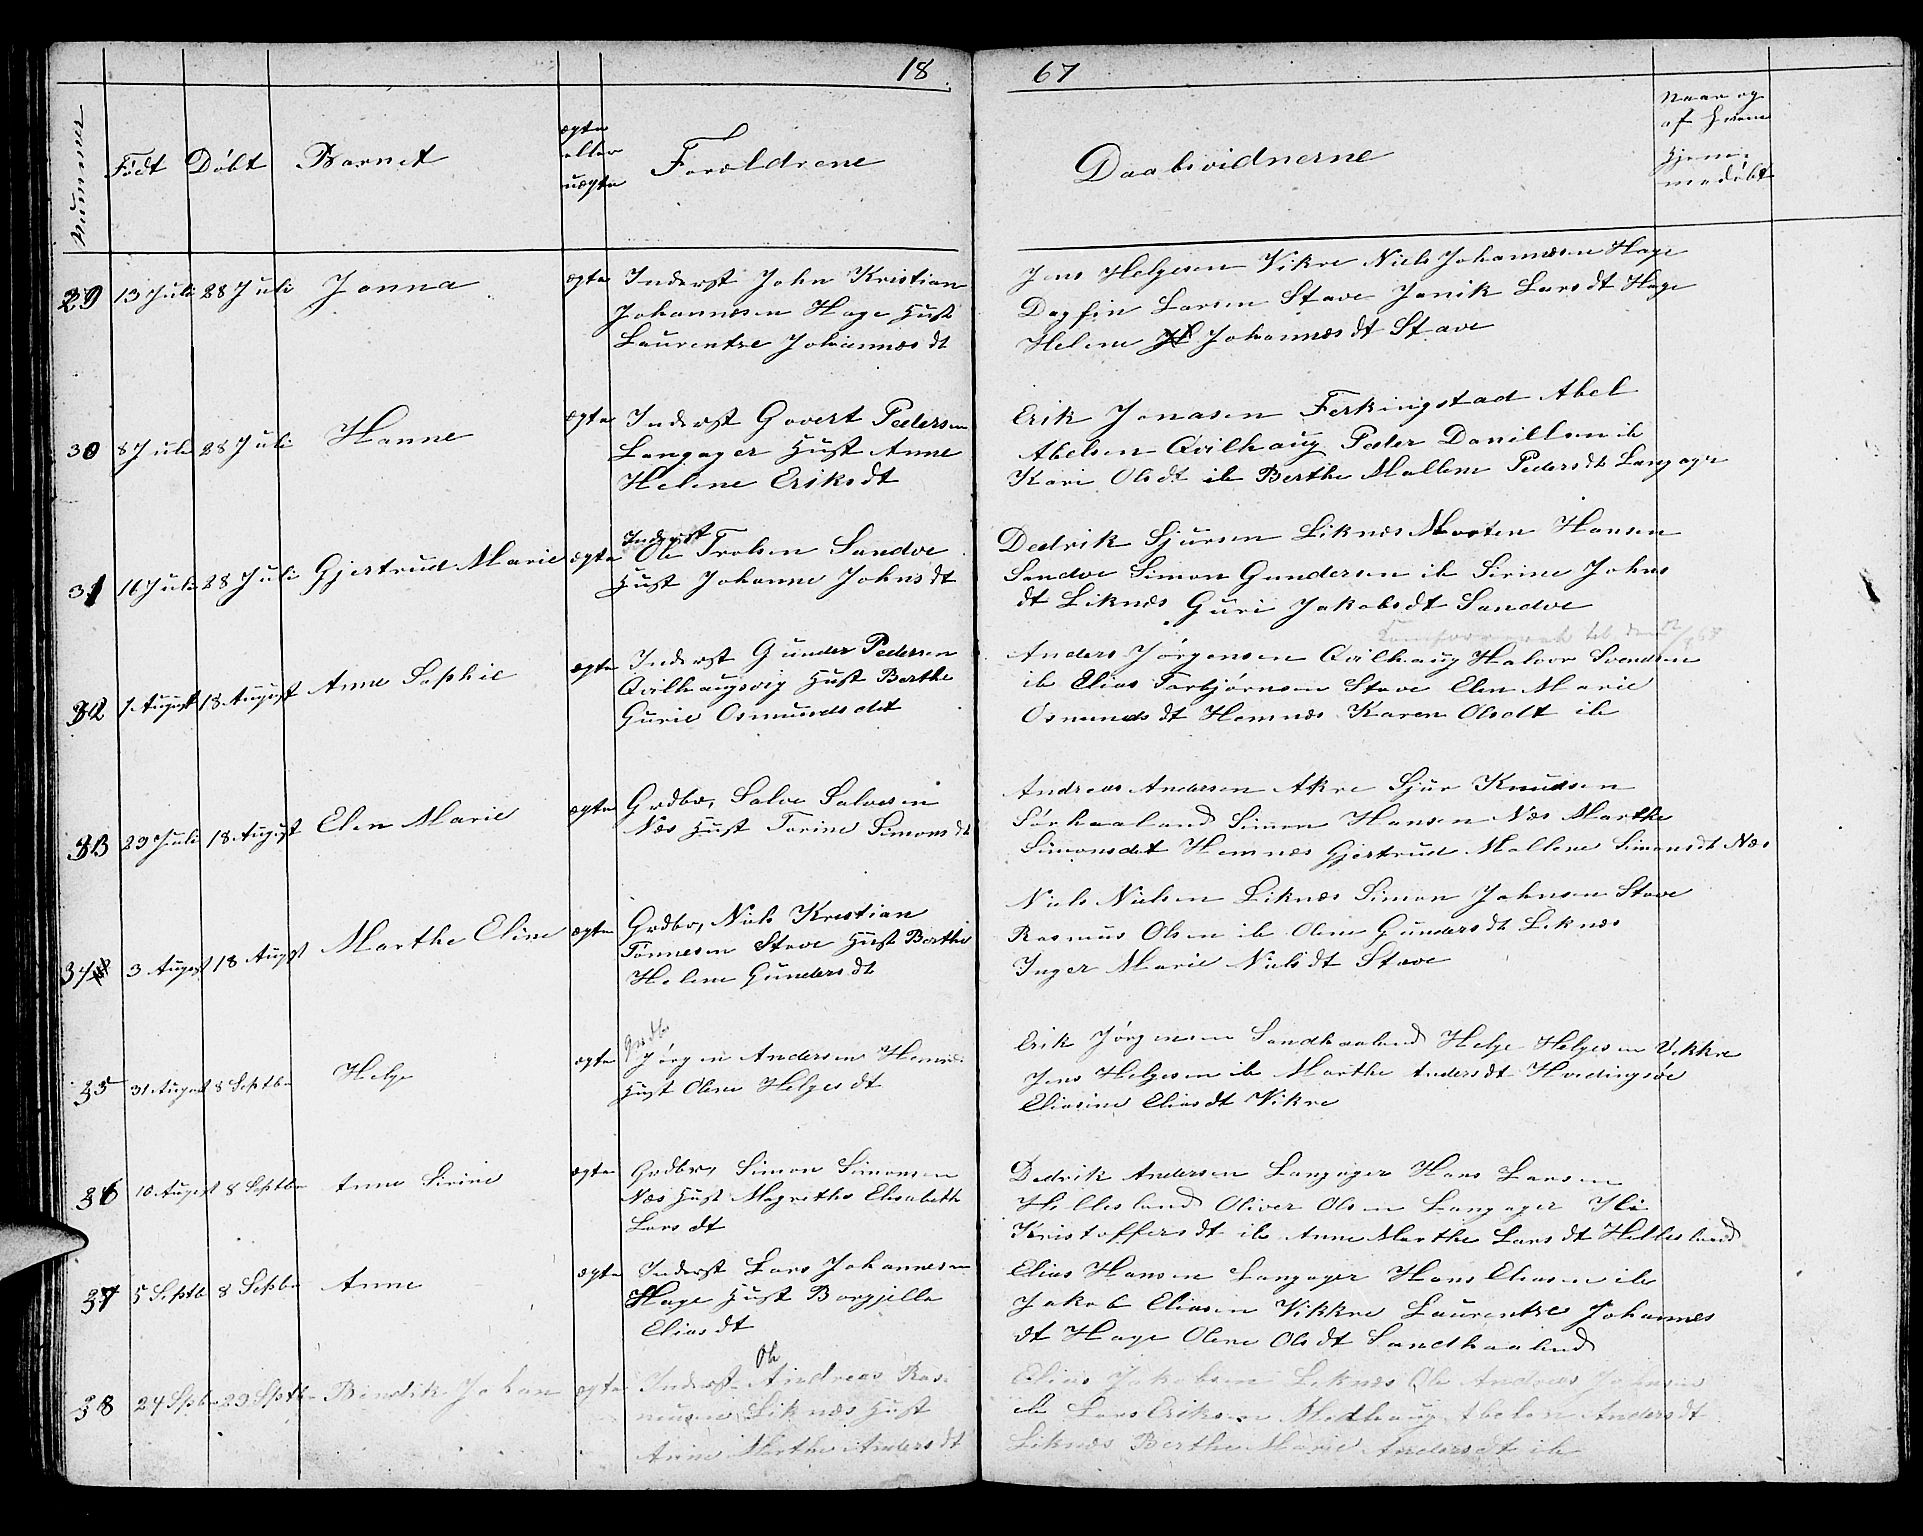 18 67
Nummer Födt Döbt Barnet ægte eller uægte Foreldrene Daabsvidnerne Naar og af Hvem Hjemmedöbt
29 13 Juli 28 Juli Jonna ægte Inderst John Kristian
Johannesen Hage Hust
Laurentze Johannesdt
Jens Helgesen Vikre Niels Johannesen Hage
Dagfin Larsen Stave Janik Larsdt Hage
Helene Johannesdt Stave
30 8 Juli 28 Juli Hanne ægte Inderst Govert Pedersen
Langager Hust Anne
Helene Eriksdt
Erik Jonasen Ferkingstad Abel
Abelsen Qvilhaug Peder Danillsen ib
Kari Olsdt ib Berthe Mallene Pedersdt Langager
31 16 Juli 28 Juli Gjertrud Marie ægte Inderst
Ole Trolsen Sandve
Hust Johanne Johnsdt
Dedrik Sjursen Liknes Morten Hansen
Sandve Simon Gundersen ib Sirine Johns
dt Liknes Guri Jakobsdt Sandve
32 1 August 18 August Anne Sophie ægte Inderst Gunder Pedersen
Qvilhaugsvig Hust Berthe
Gurie Osmundsdat
Anders Jörgensen Qvilhaug Halvor Svendsen
ib Elias Torbjörnsen Stave Elen Marie
Osmundsdt Hemnes Karen Olsdt ib
33 29 Juli 18 August Elen Marie ægte Grdbr, Salve Salvesen
Næs Hust Torine Simonsdt
Andreas Andersen Akre Sjur Knudsen
Sörhaaland Simon Hansen Næs Marthe
Simonsdat Hemnes Gjertrud Mallene Simonsdt Næs
34 3 August 18 August Marthe Eline ægte Grdbr, Niels Kristian
Tönnesen Stave Hust Berthe
Helene Gundersdt
Niels Nielsen Liknes Simon Johnsen Stave
Rasmus Olsen ib Oline Gundersdt Liknes
Inger Marie Nielsdt Stave
35 31 August 8 Septbr Helge ægte Grdbr
Jörgen Andersen Hemnes
Hust Oline Helgesdt
Erik Jörgensen Sandhaaland Helge Helgesen Vikkre
Jens Helgesen ib Marthe Andersdt Hvidingsöe
Eliasine Eliasdt Vikre
36 10 August 8 Septbr Anne Sirine ægte Grdbr, Simon Simonsen
Næs Hust Magrethe Elisabeth
Larsdt
Dedrik Andersen Langager Hans Larsen
Hillesland Oliver Olsen Langager
Kristoffersdt ib Anne Marthe Larsdt Hillesland
37 5 Septb 8 Septbr Anne ægte Inderst Lars Johannesen
Hage Hust Borgjille
Eliasdt
Elias Hansen Langager Hans Eliasen ib
Jakob Eliasen Vikkre Laurentze Johannes
dt Hage Oline Olsdt Sandhaaland
38 24 Spbr 29 Sptbr Bendik Johan ægte Inderst Ole Andreas Ras
musen Liknes Hust
Anne Marthe Andersdt
Elias Jakobsen Liknes Ole Andreas Johnsen
ib Lars Eriksen Medhaug Abelon Andersdt
Liknes Berthe Marie Andersdt ib